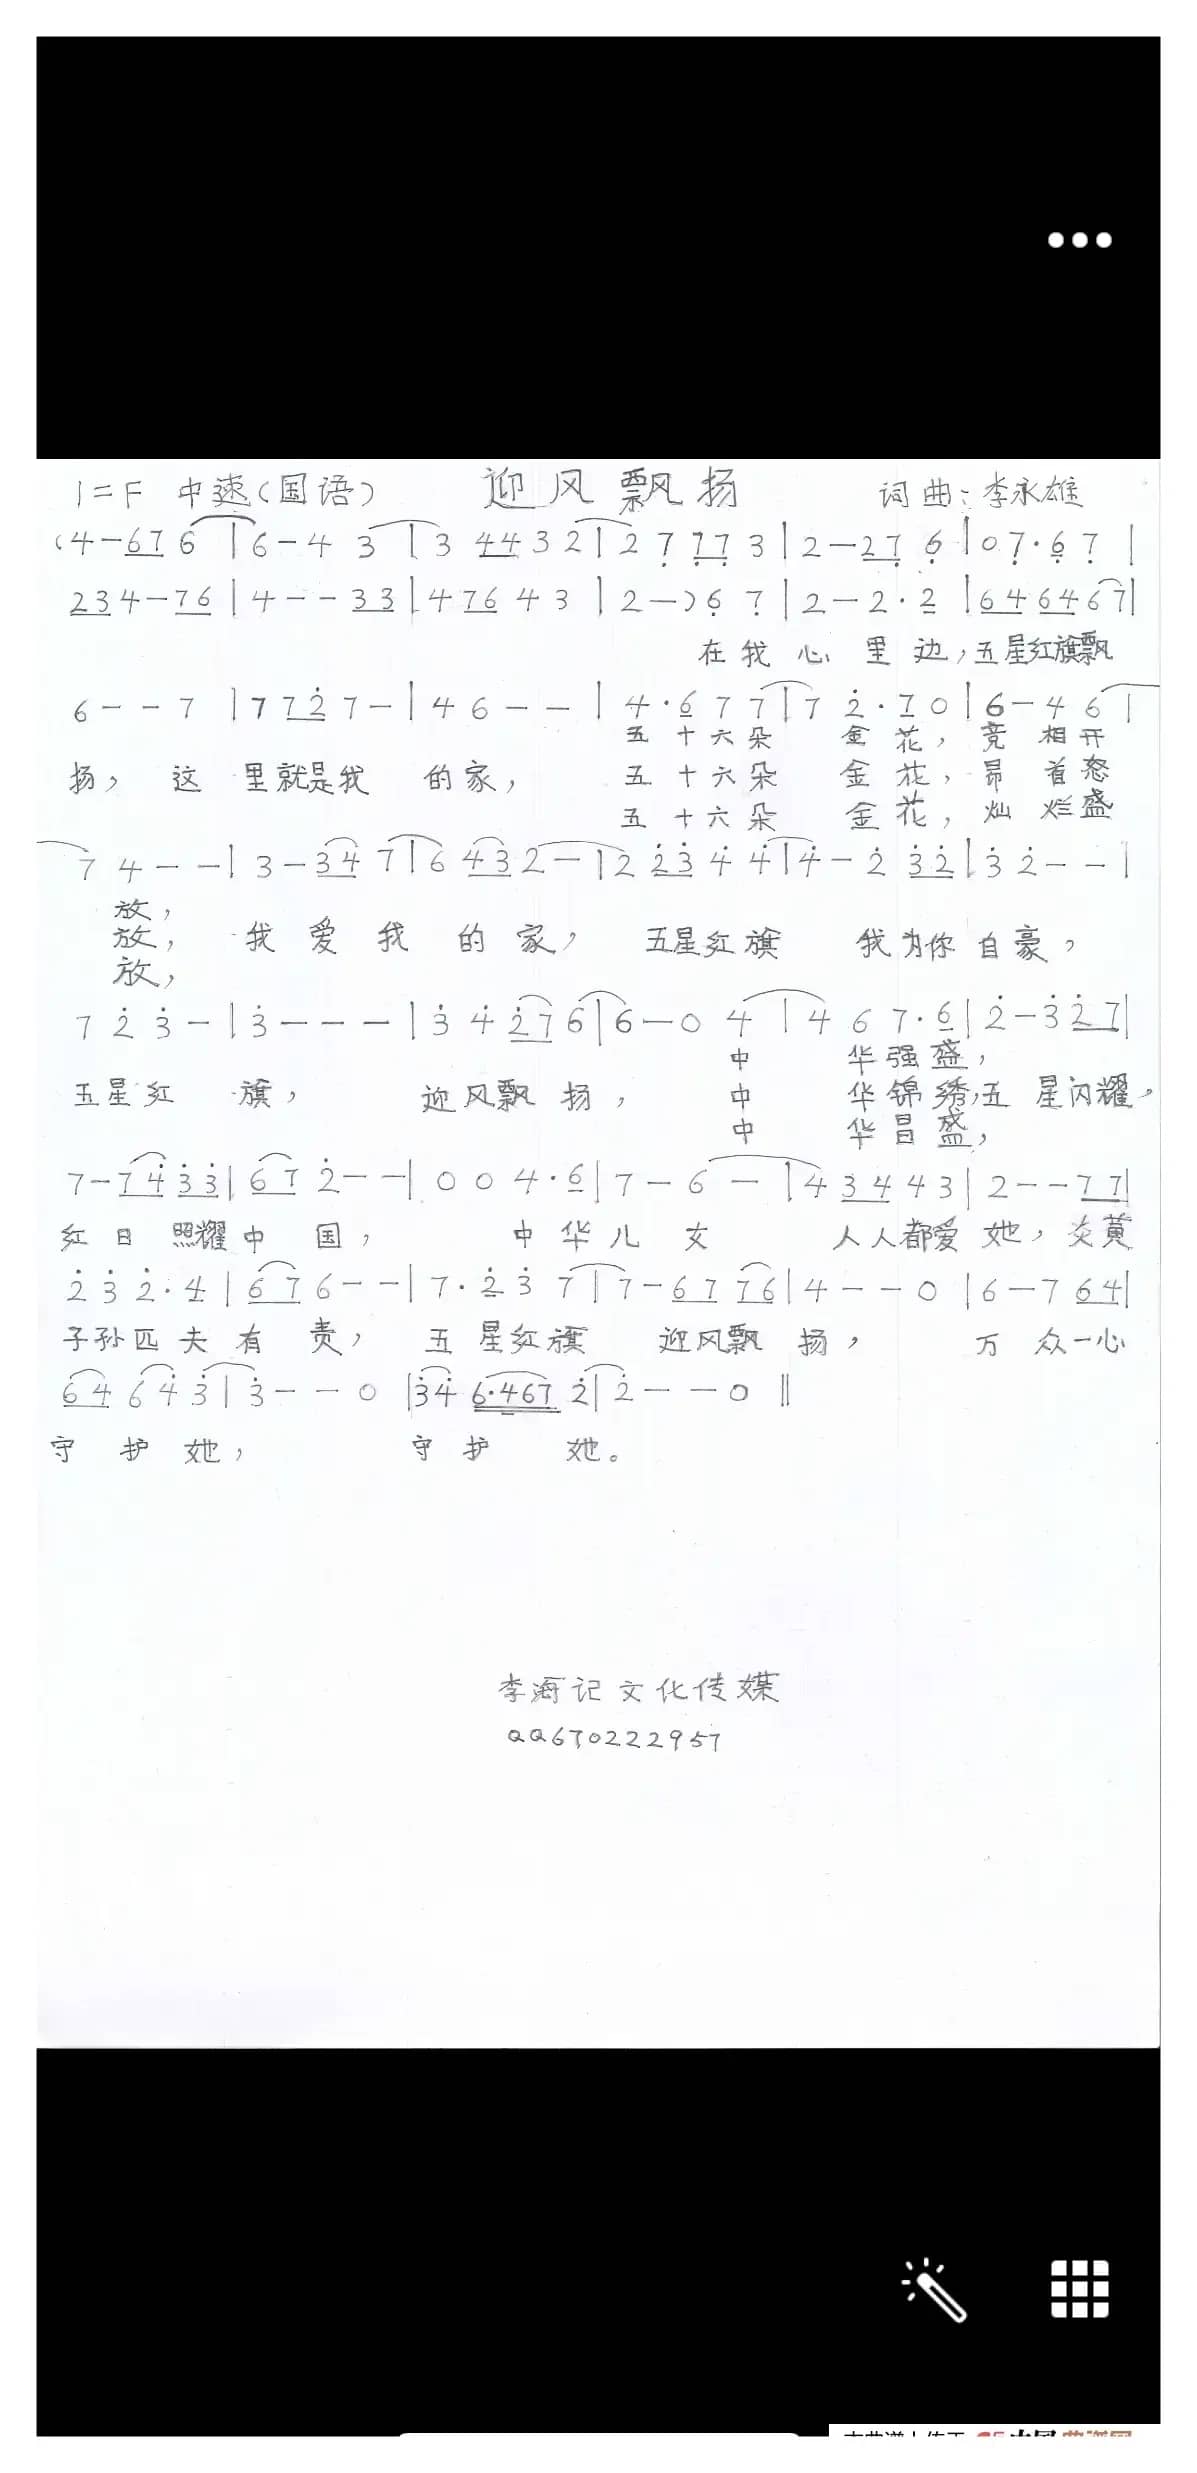 1=F 中速(国语) 迎风飘扬 词曲:李永雄
(4-676|6-43|34432|27773|2-276|07·67|
234-76|4--33|47643|2-)67|2-2·2|646467|
在我心里边,五星红旗飘
6--7|7727-|46--|4·677|72·70|6-46|
五十六朵金花,竞相开
扬,这里就是我的家,五十六朵金花,昂首怒
五十六朵金花,灿烂盛
74--|3-347|6432-|22344|4-232|32--|
放,
放,我爱我的家,五星红旗我为你自豪,
放,
723-|3---|34276|6-04|467·6|2-327|
中华强盛,
五星红旗,迎风飘扬,中华锦绣,五星闪耀,
中华昌盛,
7-7433|672--|004·6|7-6-|43443|2--77|
红日照耀中国,中华儿女人人都爱她,炎黄
232·4|676--|7·237|7-6776|4--0|6-764|
子孙匹夫有责,五星红旗迎风飘扬,万众一心
64643|3--0|346·4672|2--0‖
守护她,守护她。
李海记文化传媒
QQ670222957